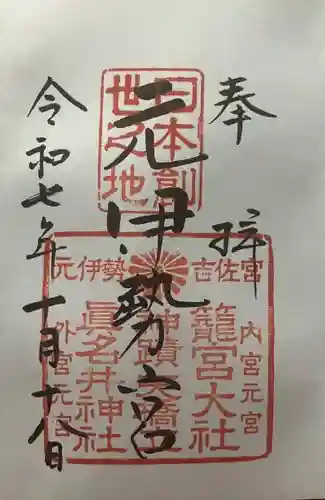 奉拝
日本創
世之地
元伊勢宮
元伊勢 吉佐宮
内宮元宮
籠宮大社
神蹟天橋立
眞名井神社
外宮元宮
令和七年十月十八日